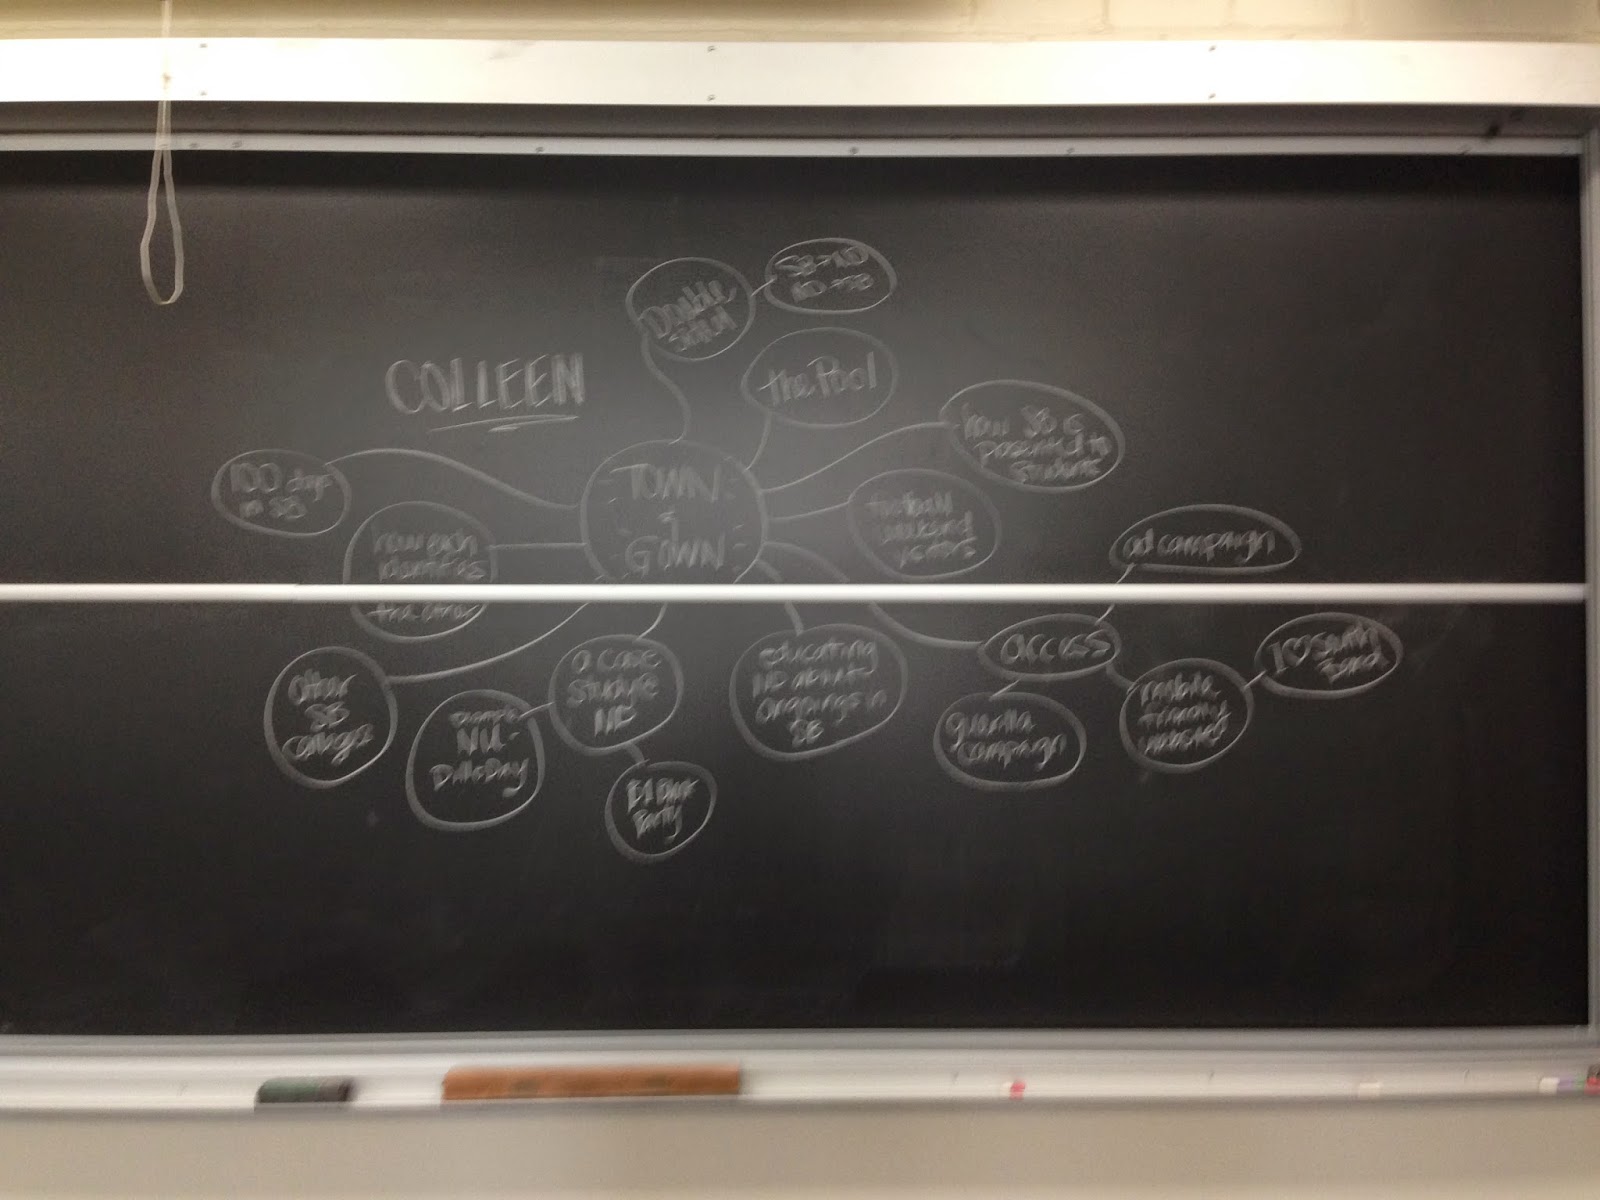 SB→ND
ND→SB
Double
the Pool
COLLEEN
how SB is
presented to
students
100 days
in SB
TOWN
+
GOWN
football
weekend
visitors
how each
identifies
the other
ad campaign
access
I ♡ South
Bend
other
SB
colleges
a case
study @
ND
educating
ND about
ongoings in
SB
guerilla
campaign
mobile
friendly
website
NU-
Dillo Day
Party